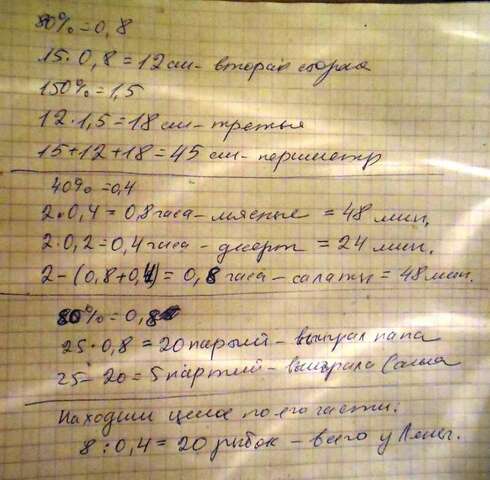 80% = 0,8
15 · 0,8 = 12 см - вторая сторона
150% = 1,5
12 · 1,5 = 18 см - третья
15 + 12 + 18 = 45 см - периметр
40% = 0,4
2 · 0,4 = 0,8 часа - мясные = 48 мин,
2 · 0,2 = 0,4 часа - десерт = 24 мин.
2 - (0,8 + 0,4) = 0,8 часа - салаты = 48 мин.
80% = 0,8
25 · 0,8 = 20 партий - выиграл папа
25 - 20 = 5 партий - выиграла Саша
Находим целое по его части.
8 : 0,4 = 20 рыбок - всего у Лены.